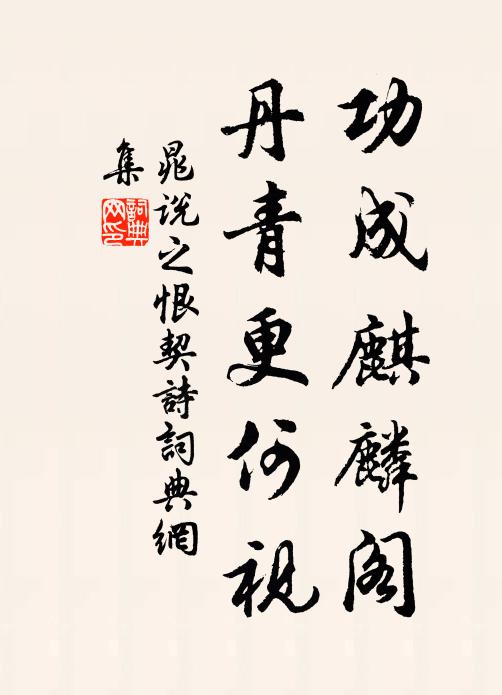 功成麒麟阁
丹青更何視
晁説之恨契詩詞典網
集
詞典網印